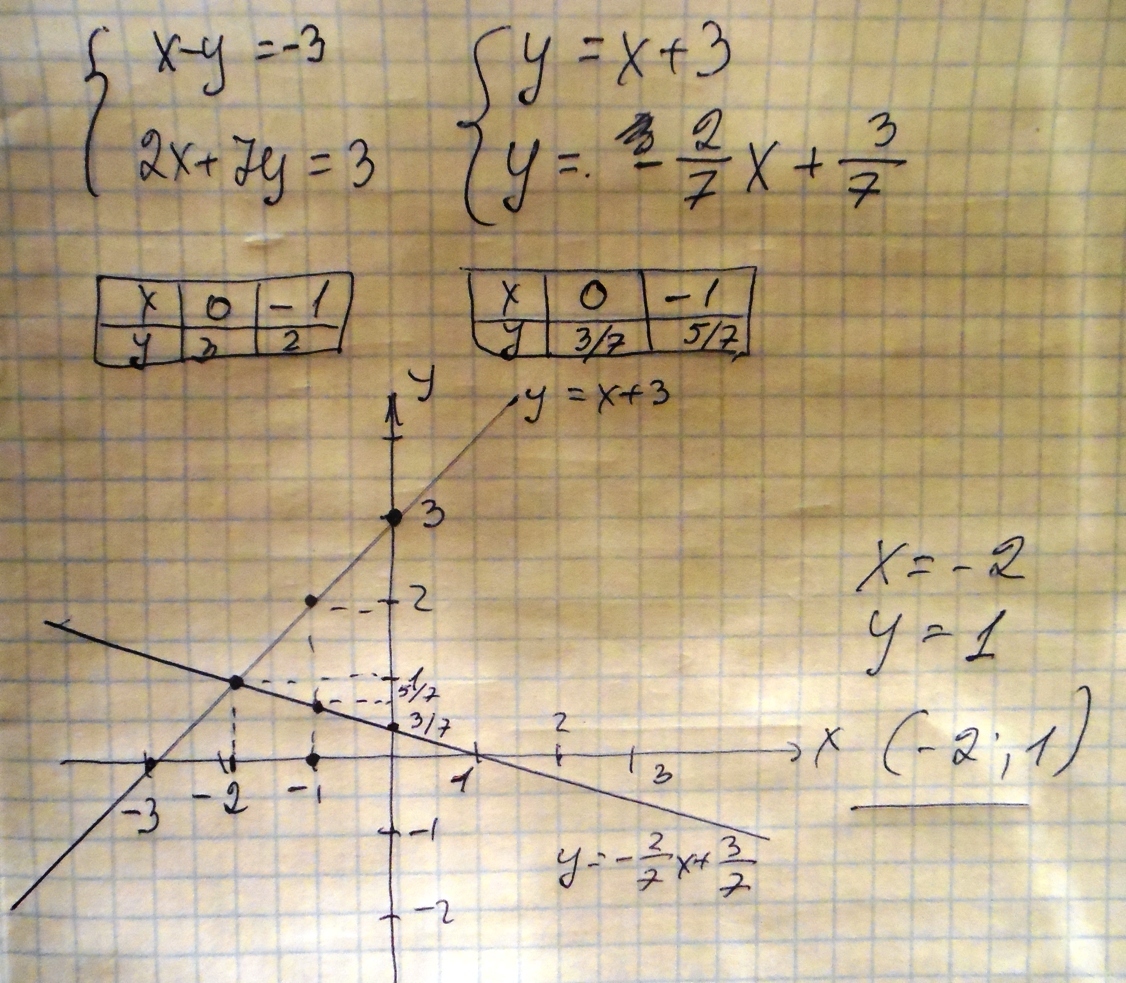 x-y=-3
2x+7y=3
y=x+3
y=. - 2/7 x + 3/7
x 0 -1
y 3 2
x 0 -1
y 3/7 5/7
y
y=x+3
3
2
1
5/7
3/7
2
x
-3 -2 -1
1
3
-1
-2
y=-2/7x+3/7
x=-2
y=1
(-2;1)